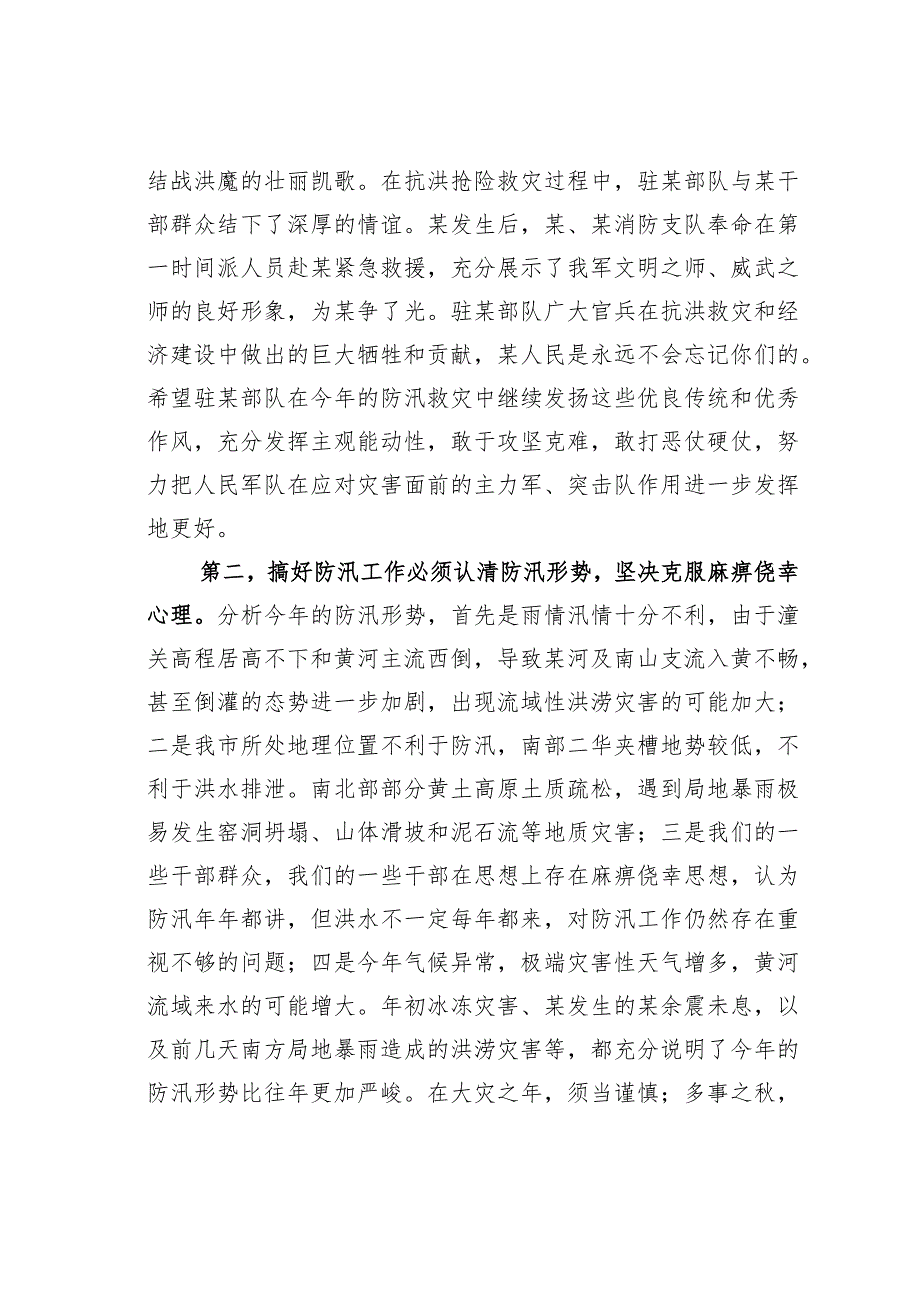 结战洪魔的壮丽凯歌。在抗洪抢险救灾过程中，驻某部队与某干
部群众结下了深厚的情谊。某发生后，某、某消防支队奉命在第
一时间派人员赴某紧急救援，充分展示了我军文明之师、威武之
师的良好形象，为某争了光。驻某部队广大官兵在抗洪救灾和经
济建设中做出的巨大牺牲和贡献，某人民是永远不会忘记你们的。
希望驻某部队在今年的防汛救灾中继续发扬这些优良传统和优秀
作风，充分发挥主观能动性，敢于攻坚克难，敢打恶仗硬仗，努
力把人民军队在应对灾害面前的主力军、突击队作用进一步发挥
地更好。
第二，搞好防汛工作必须认清防汛形势，坚决克服麻痹侥幸
心理。分析今年的防汛形势，首先是雨情汛情十分不利，由于潼
关高程居高不下和黄河主流西倒，导致某河及南山支流入黄不畅，
甚至倒灌的态势进一步加剧，出现流域性洪涝灾害的可能加大；
二是我市所处地理位置不利于防汛，南部二华夹槽地势较低，不
利于洪水排泄。南北部部分黄土高原土质疏松，遇到局地暴雨极
易发生窑洞坍塌、山体滑坡和泥石流等地质灾害；三是我们的一
些干部群众，我们的一些干部在思想上存在麻痹侥幸思想，认为
防汛年年都讲，但洪水不一定每年都来，对防汛工作仍然存在重
视不够的问题；四是今年气候异常，极端灾害性天气增多，黄河
流域来水的可能增大。年初冰冻灾害、某发生的某余震未息，以
及前几天南方局地暴雨造成的洪涝灾害等，都充分说明了今年的
防汛形势比往年更加严峻。在大灾之年，须当谨慎；多事之秋，